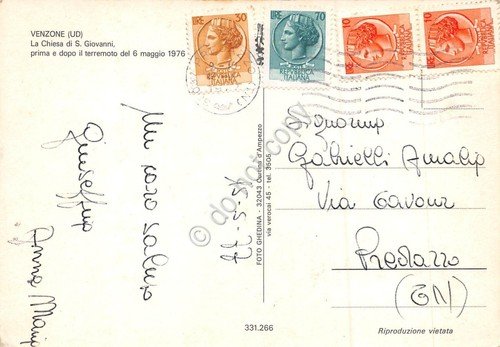 VENZONE (UD)
La Chiesa di S. Giovanni,
prima e dopo il terremoto del 6 maggio 1976
LIRE 30
LIRE 70
10
10
REPUBBLICA
ITALIANA
Un caro saluto
Giuseppina
Anna Maria
15-5-77
FOTO GHEDINA - 32043 Cortina d'Ampezzo
via verocai 45 - tel. 3506
331.266
Signorina
Gabrielli Amalia
Via Cavour
Predazzo
(TN)
Riproduzione vietata
do not copy